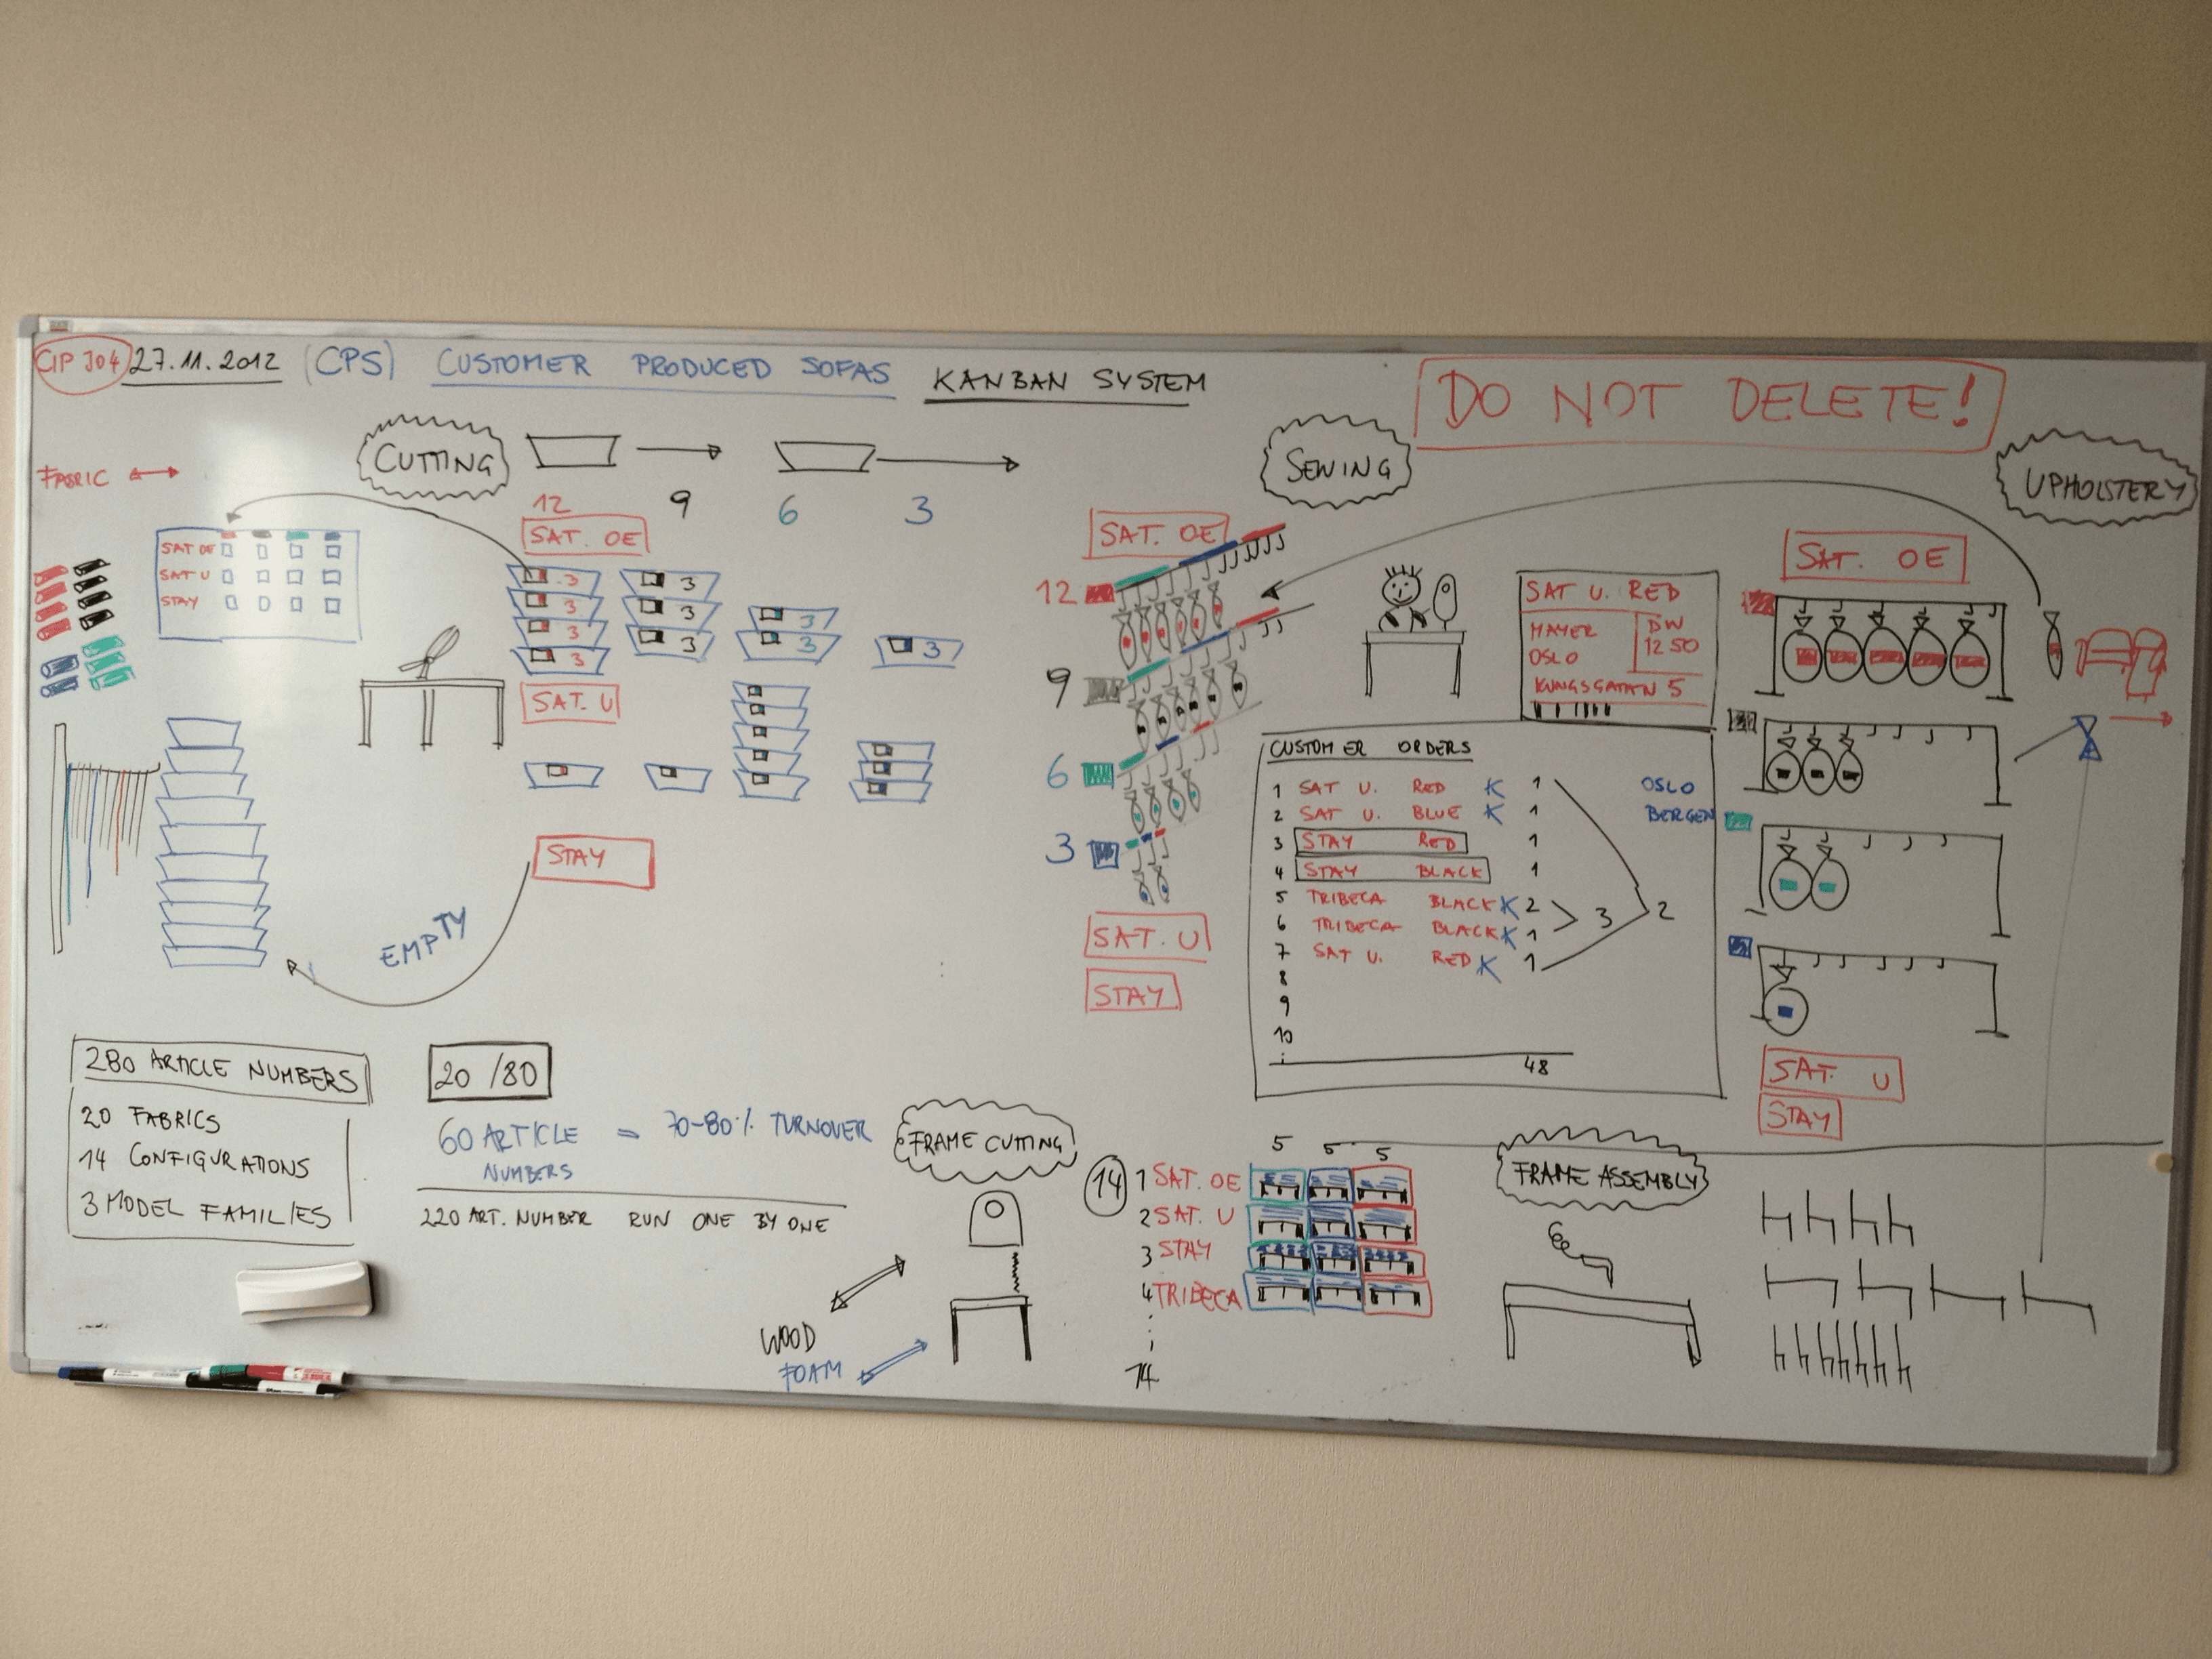 CIP J04 27.11.2012 (CPS) CUSTOMER PRODUCED SOFAS KANBAN SYSTEM
DO NOT DELETE!
FABRIC
CUTTING
12 9 6 3
SAT. OE
SAT OE
SAT U
STAY
3 3
3 3 3
3 3 3 3
3
SAT. U
STAY
EMPTY
280 ARTICLE NUMBERS
20 FABRICS
14 CONFIGURATIONS
3 MODEL FAMILIES
20/80
60 ARTICLE NUMBERS = 70-80% TURNOVER
220 ART. NUMBER RUN ONE BY ONE
SEWING
SAT. OE
12
9
6
3
SAT. U
STAY
SAT U. RED
MAYER
OSLO
DW
1250
KUNGSGATAN 5
CUSTOMER ORDERS
1 SAT U. RED K 1 OSLO
2 SAT U. BLUE K 1 BERGEN
3 STAY RED 1
4 STAY BLACK 1
5 TRIBECA BLACK K 2
3 2
6 TRIBECA BLACK K 1
7 SAT U. RED K 1
8
9
10
48
UPHOLSTERY
SAT. OE
SAT. U
STAY
FRAME CUTTING
WOOD
FOAM
5 5 5
14
1 SAT. OE
2 SAT. U
3 STAY
4 TRIBECA
14
FRAME ASSEMBLY